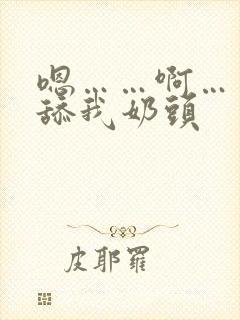 嗯……啊…
舔我奶頭
皮耶羅